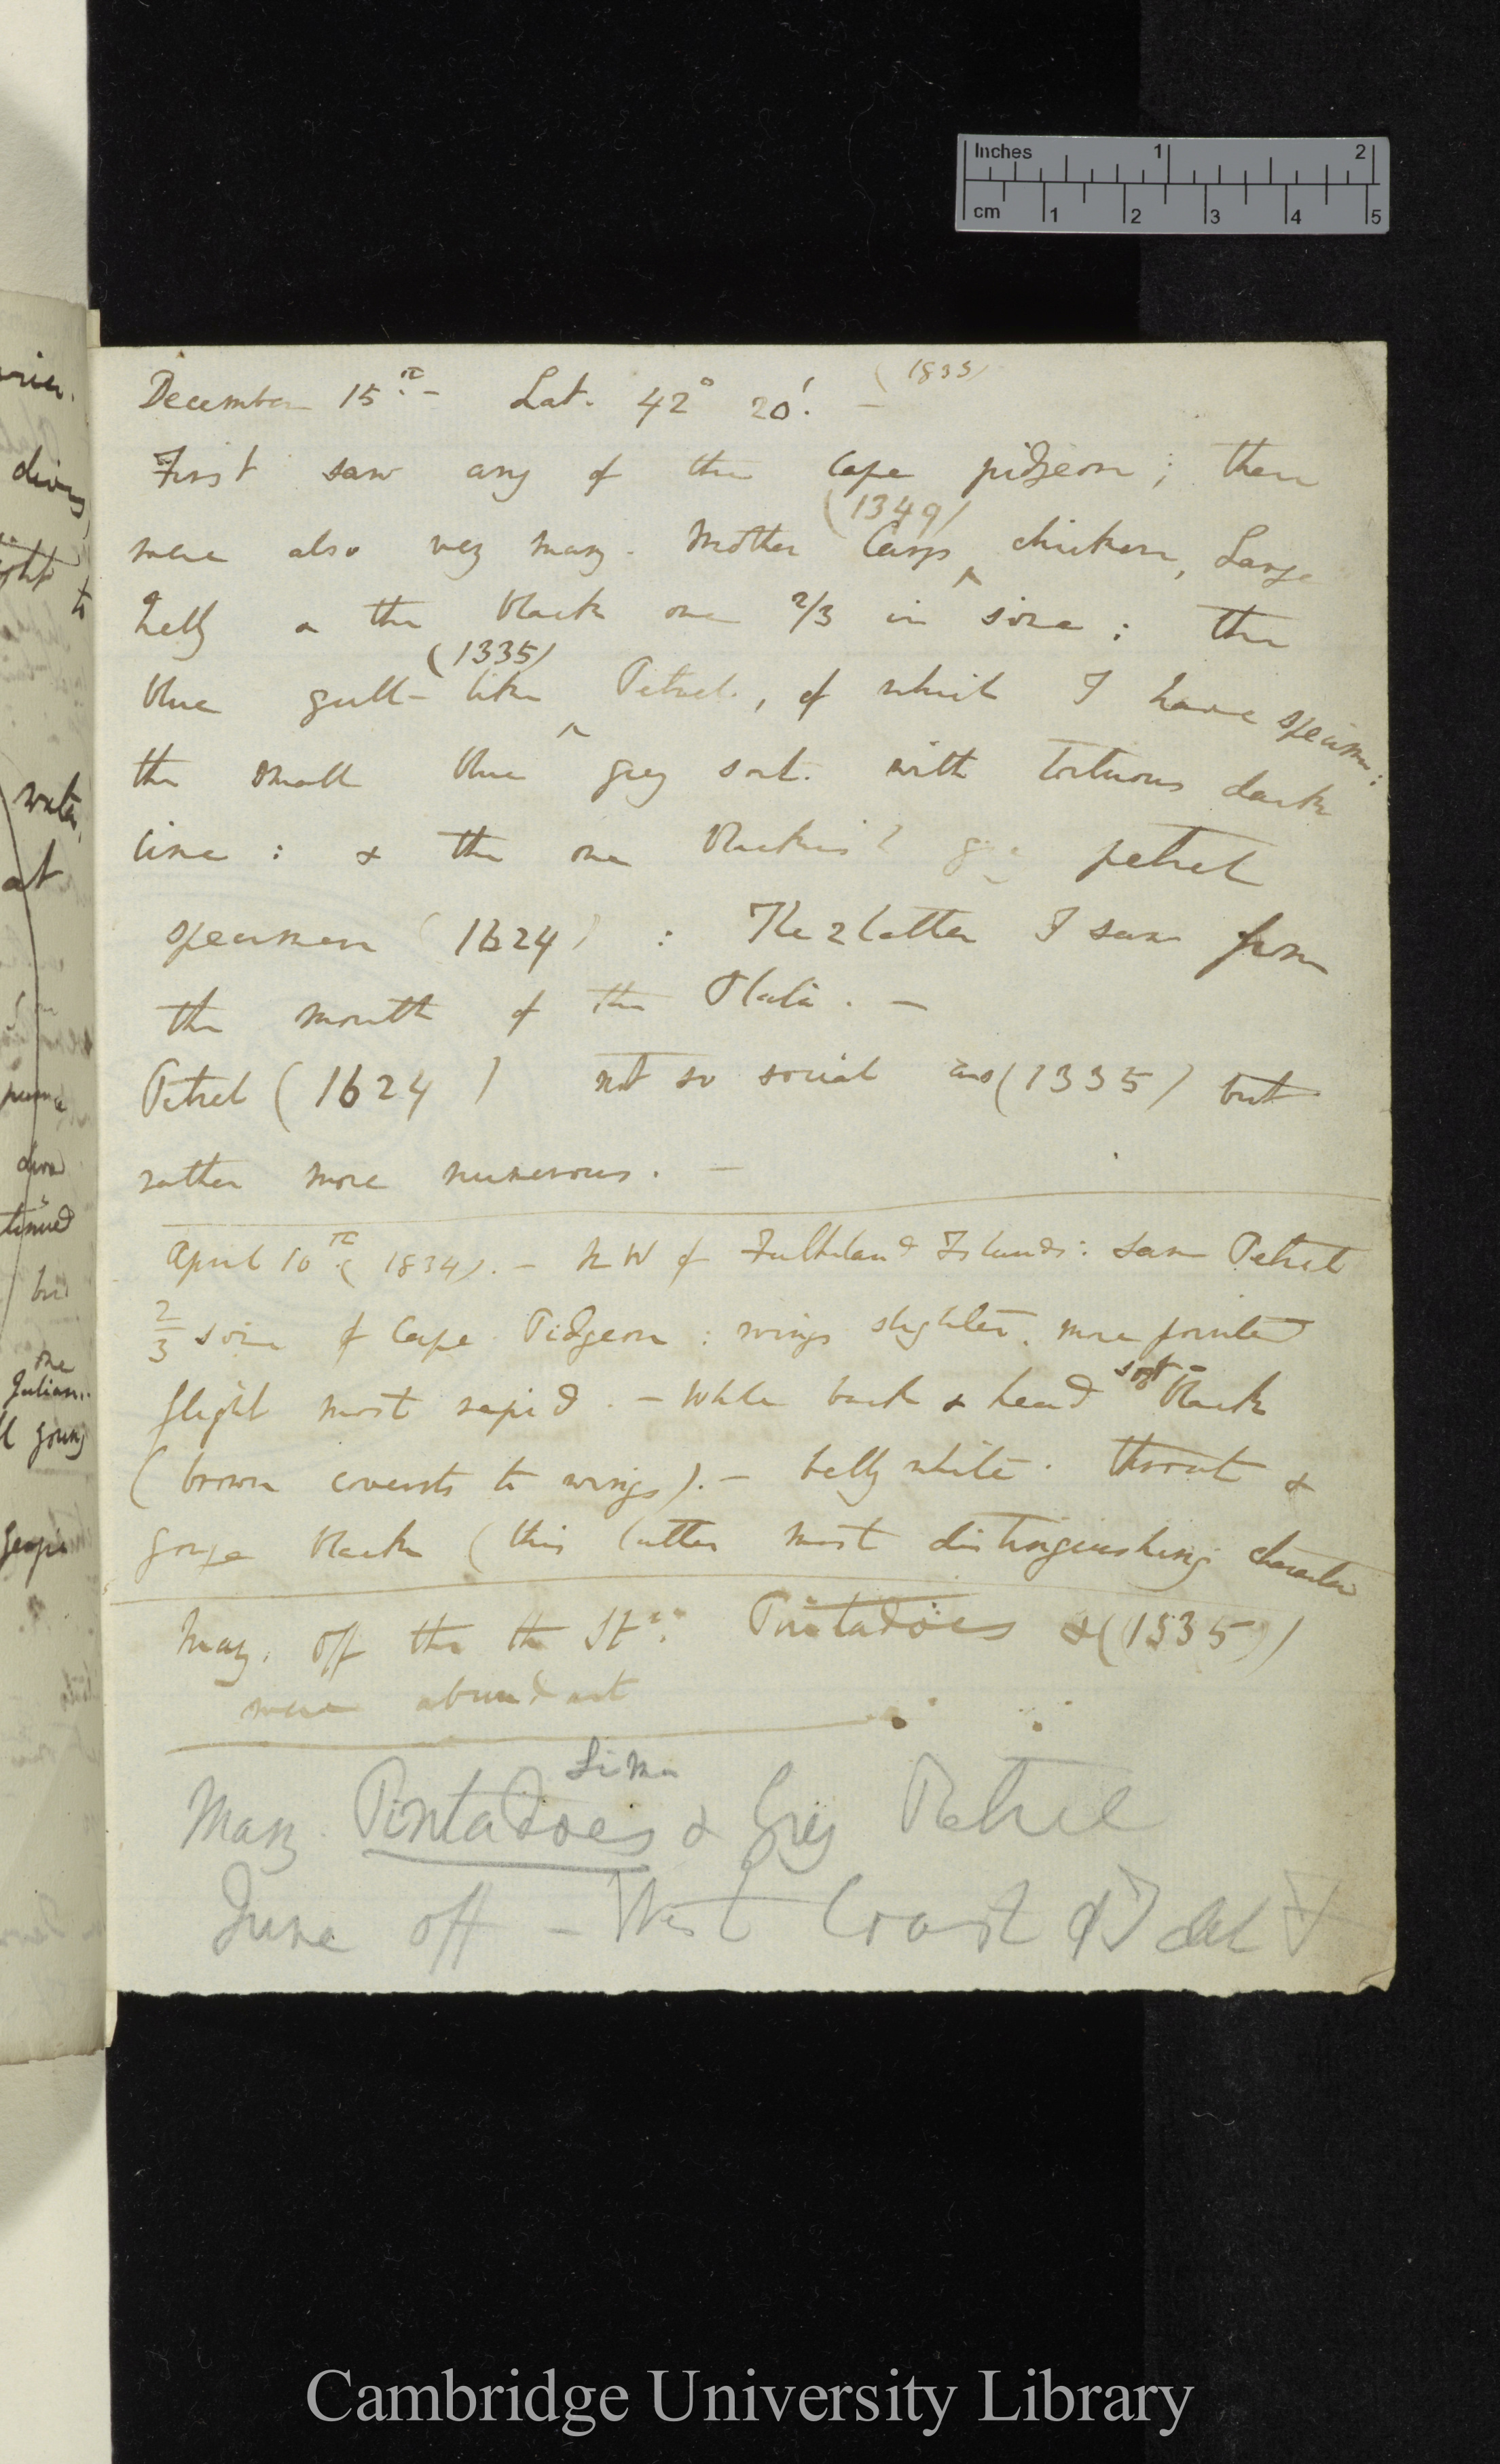 Inches 1 2
cm 1 2 3 4 5
December 15th.- Lat. 42° 20'. — (1833)
First saw any of the Cape pidgeon; there
were also very many. Mother Carys ^(1349) chicken, Large
Nelly & the black one 2/3 in size: the
blue gull-like ^(1335) Petrel, of which I have specimen:
the small blue grey sort. with tortuous dark
line: & the one blackish grey petrel
specimen (1624): The 2 latter I saw from
the mouth of the Plata. —
Petrel (1624) not so social as (1335) but
rather more numerous. —
April 10th (1834). — NW of Falkland Islands: saw Petrel
2/3 size of Cape Pidgeon: wings slighter, more pointed
flight most rapid. — Whole back & head soot- black
(brown coverts to wings). — belly white. throat &
gorge black (this latter most distinguishing character
May. off the the St.: Pintadoes & (1335)
were abundant
Lima
Many Pintadoes & Grey Petrel
June off - West Coast of T del F
water,
at
one
Julian..
young
Cambridge University Library